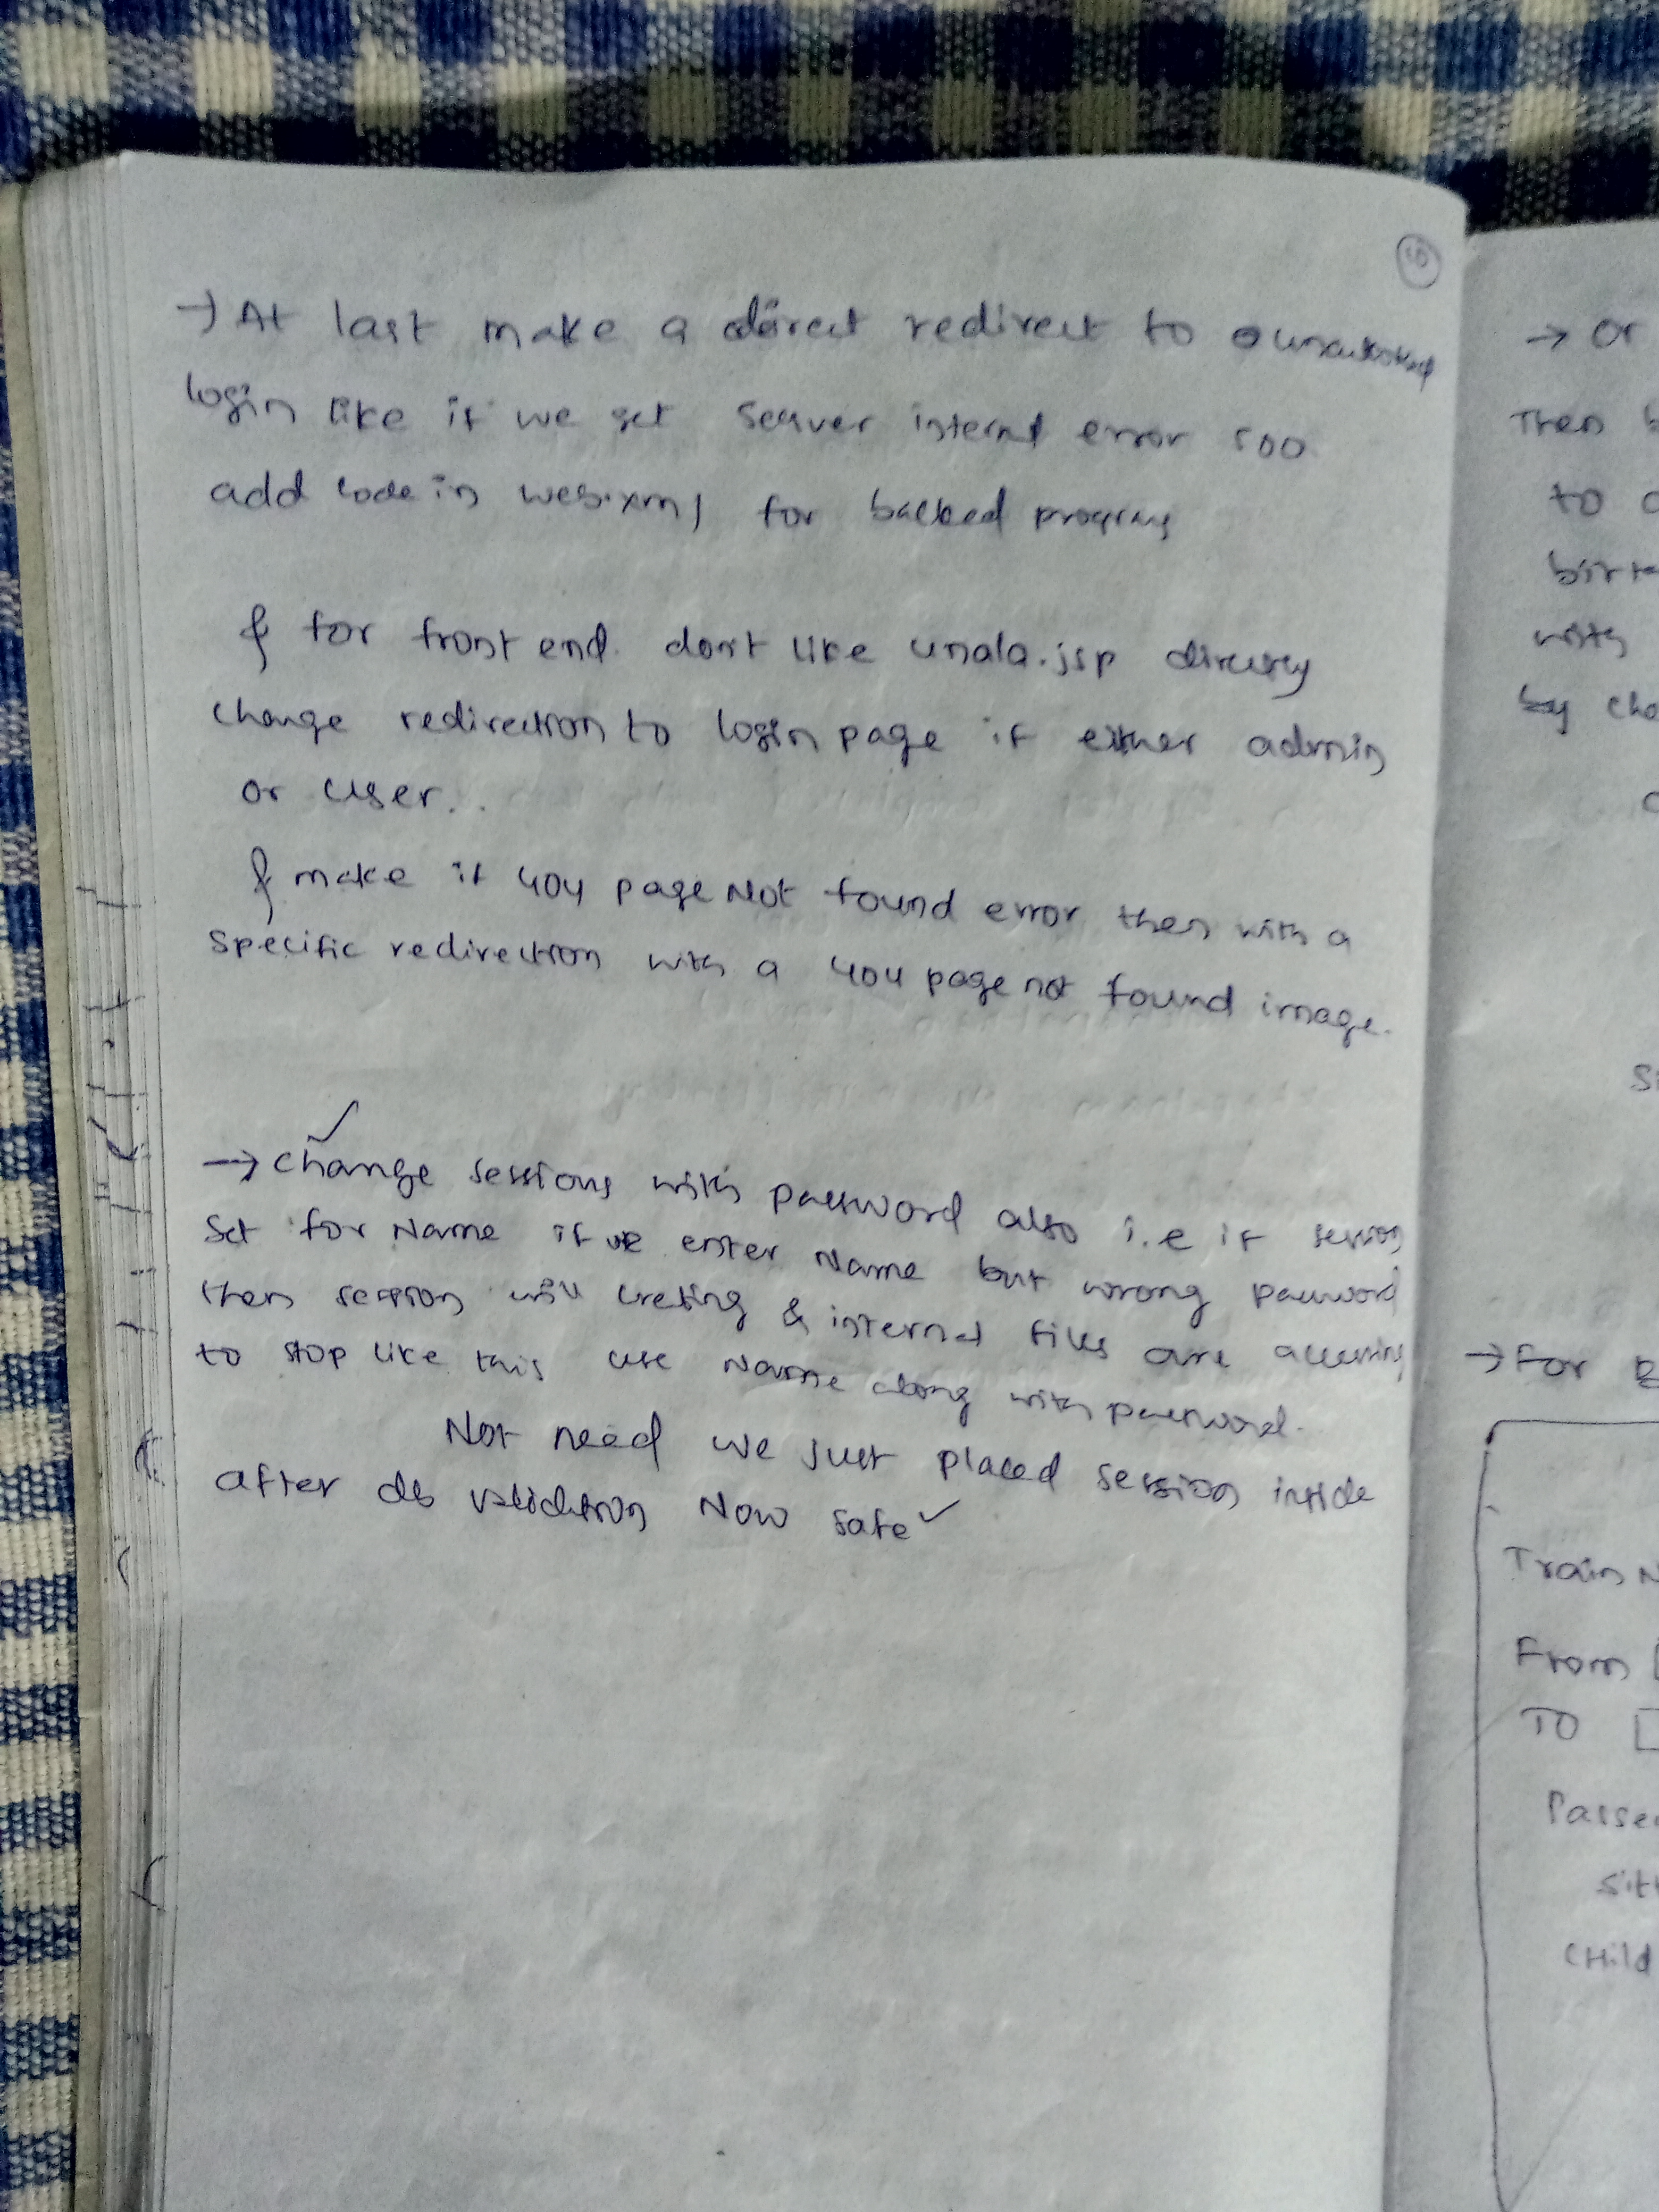 10
→ At last make a direct redirect to
login like if we get server internal error 500
add code in web.xml for backed program
& for front end. dont like unala.jsp directly
change redirection to login page if either admin
or user..
& make it 404 page Not found error then with a
specific redirection with a 404 page not found image.
→ change sessions with password also i.e if session
set for Name if we enter Name but wrong password
then session will creating & internal files are accessing
to stop like this use Name along with password.
Not need we just placed session inside
after db validation Now safe ✓
→ or
Then
to
with
by
→ For
Train N
From
TO
CHild